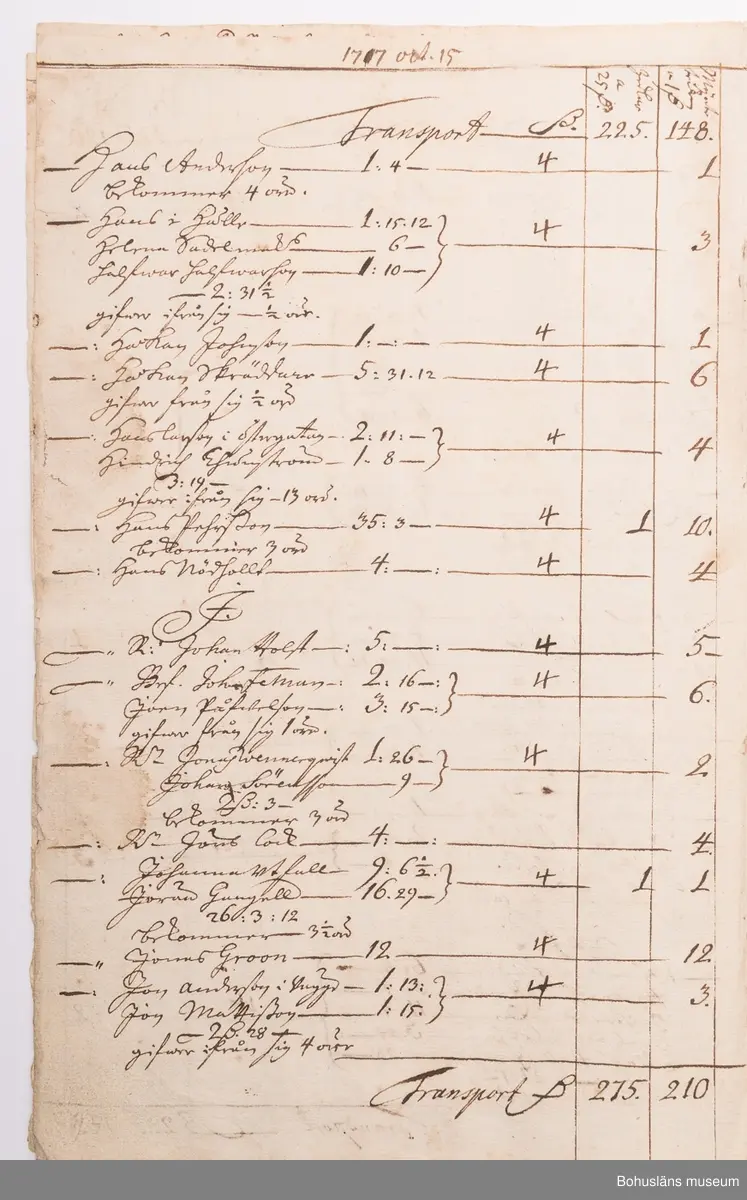 1717 oct. 15
a 25 ß. a 1 ß
Transport — ß. 225. 148.
— Hans Anderson — 1: 4 — 4 1
bekommer 4 örd.
— Hans i Hälle — 1: 15. 12
Helena Sadelmaks — 6 — 4 3
Halfwar Halfwarson — 1: 10 —
— 2: 31 ½
gifwer ifrån sig — ½ öre.
—: Håkan Johnson — 1. —: — 4 1
—: Håkan Skräddare — 5: 31. 12 4 6
gifwer från sig ½ örd
—: Hans Larson i östergatan — 2: 11: — 4
Hindrich — 1. 8 — 4
3: 19 —
gifwer ifrån sig — 13 örd.
—: Hans Pehrsson — 35: 3 — 4 1 10.
bekommer 3 örd
—: Hans Nödhollt — 4: —: 4 4
J.
—" R: Johan Holst —: 5: — 4 5
—" Bef. Joh. —: 2: 16 —: 4
Joen Påfwelson —: 3: 15 —: 6.
gifwer från sig 1 örd.
—: Jonas Wennerqwist 1: 26 — 4
Johan Sörensson 9 — 2
2 ß: 3 —
bekommer 3 örd
—: Jöns Cock — 4: —: 4.
—: Johanna Utfall — 9: 6 ½.
Jöran Gangell — 16. 29 — 4 1 1
26: 3: 12
bekommer — 3 ½ örd
—" Jonas Groon — 12 4 12
—: Jon Anderson i — 1: 13: 4
Jon Mattisson — 1: 15. 3.
— 2 ß. 28 —
gifwer ifrån sig 4 örer
Transport ß 275. 210
Bohusläns museum